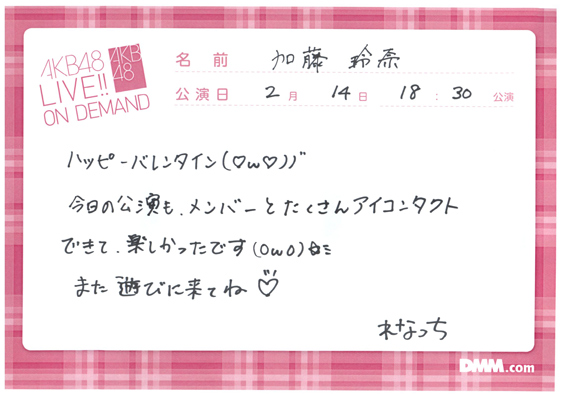 AKB48
LIVE!!
ON DEMAND
AKB
48
名前 加藤 玲奈
公演日 2月 14日 18:30 公演
ハッピーバレンタイン(♡ω♡)ノ゛
今日の公演も、メンバーとたくさんアイコンタクト
できて、楽しかったです(OωO)
また 遊びに来てね♡
れなっち
DMM.com